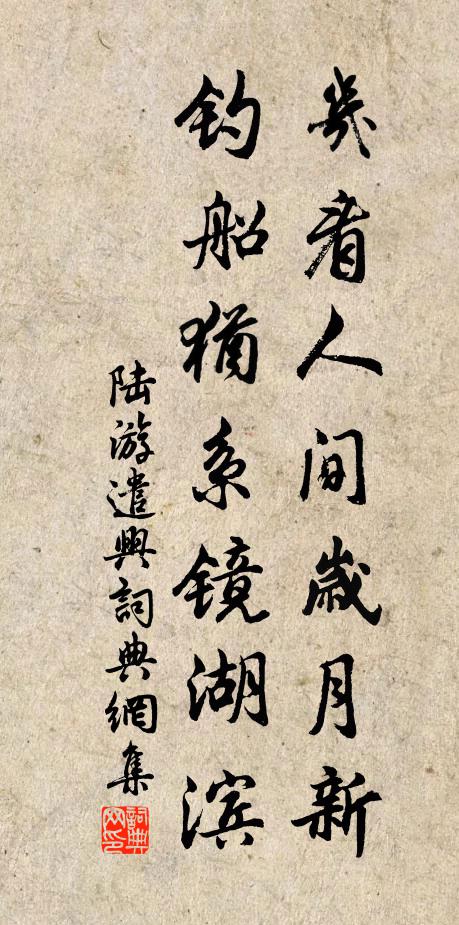 几看人间岁月新
钓船犹系镜湖滨
陆游遣興詞典網集
詞典
网印